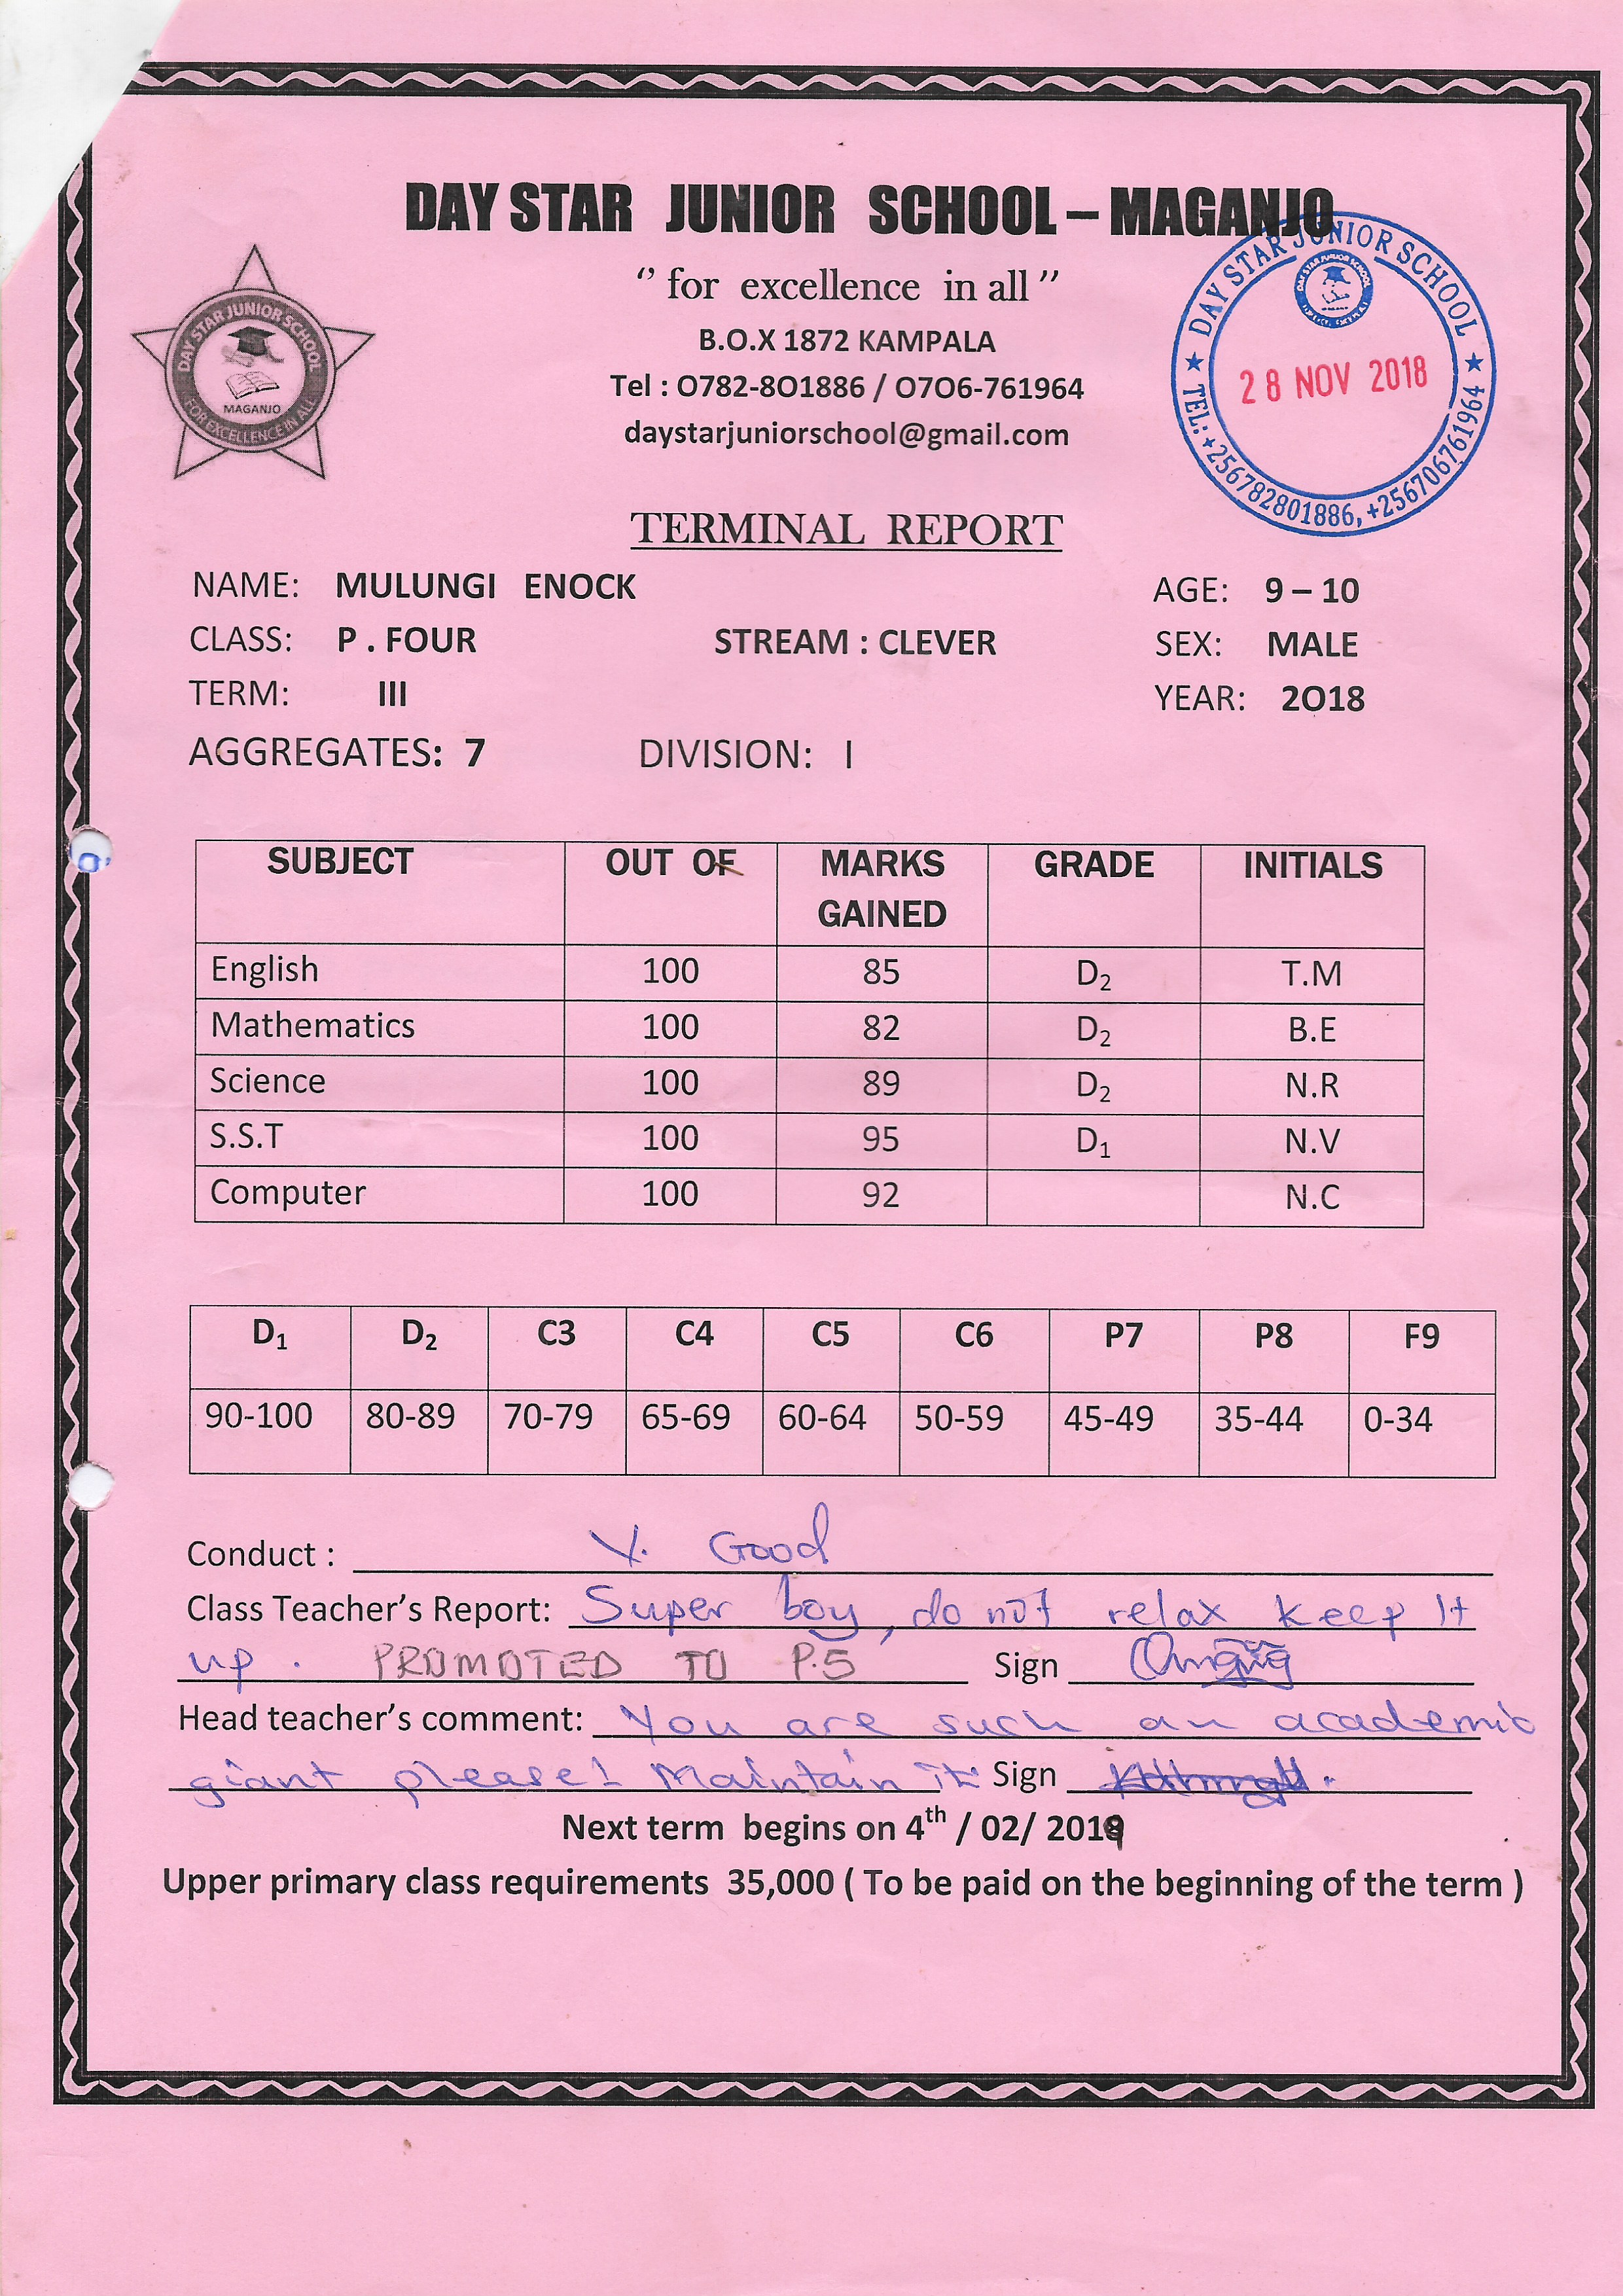 DAY STAR JUNIOR SCHOOL – MAGANJO
‘’ for excellence in all ’’
B.O.X 1872 KAMPALA
Tel : O782-8O1886 / O7O6-761964
daystarjuniorschool@gmail.com
DAY STAR JUNIOR SCHOOL
MAGANJO
FOR EXCELLENCE IN ALL
★ DAY STAR JUNIOR SCHOOL ★
DAY STAR JUNIOR SCHOOL
28 NOV 2018
TEL: +256782801886, +256706761964
TERMINAL REPORT
NAME: MULUNGI ENOCK AGE: 9 – 10
CLASS: P . FOUR STREAM : CLEVER SEX: MALE
TERM: III YEAR: 2O18
AGGREGATES: 7 DIVISION: I
SUBJECT OUT OF MARKS GAINED GRADE INITIALS
English 100 85 D2 T.M
Mathematics 100 82 D2 B.E
Science 100 89 D2 N.R
S.S.T 100 95 D1 N.V
Computer 100 92 N.C
D1 D2 C3 C4 C5 C6 P7 P8 F9
90-100 80-89 70-79 65-69 60-64 50-59 45-49 35-44 0-34
Conduct : V. Good
Class Teacher’s Report: Super boy, do not relax keep It
up . PROMOTED TO P.5 Sign
Head teacher’s comment: You are such an academic
giant please! Maintain it Sign
Next term begins on 4th / 02/ 2019
Upper primary class requirements 35,000 ( To be paid on the beginning of the term )